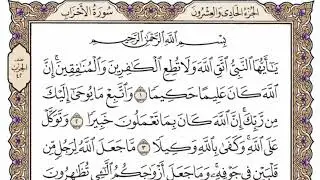 الجزء الحادى والعشرون
سورة الأحزاب
بِسْمِ اللَّهِ الرَّحْمَٰنِ الرَّحِيمِ
يَا أَيُّهَا النَّبِيُّ اتَّقِ اللَّهَ وَلَا تُطِعِ الْكَافِرِينَ وَالْمُنَافِقِينَ إِنَّ
اللَّهَ كَانَ عَلِيمًا حَكِيمًا ۝١ وَاتَّبِعْ مَا يُوحَىٰ إِلَيْكَ
مِن رَّبِّكَ إِنَّ اللَّهَ كَانَ بِمَا تَعْمَلُونَ خَبِيرًا ۝٢ وَتَوَكَّلْ
عَلَى اللَّهِ وَكَفَىٰ بِاللَّهِ وَكِيلًا ۝٣ مَّا جَعَلَ اللَّهُ لِرَجُلٍ مِّن
قَلْبَيْنِ فِي جَوْفِهِ وَمَا جَعَلَ أَزْوَاجَكُمُ اللَّائِي تُظَاهِرُونَ